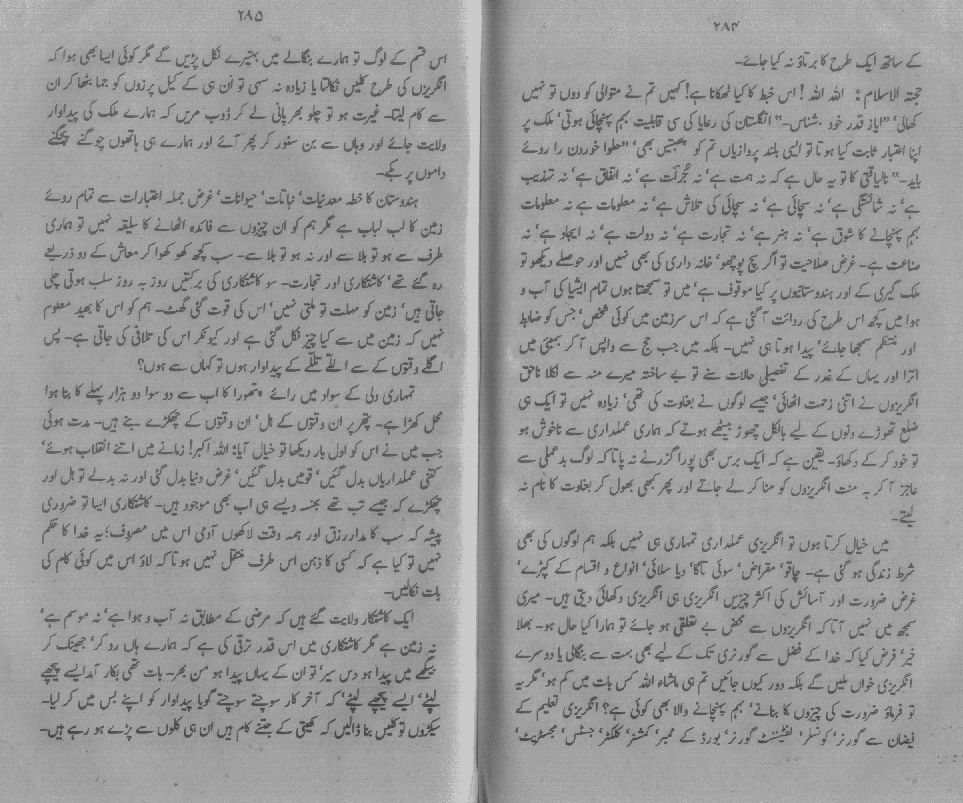 ۲۸۴
کے ساتھ ایک طرح کا برتاؤ نہ کیا جائے۔
حجتہ الاسلام: اللہ اللہ! اس خبط کا کیا ٹھکانا ہے! کہیں تم نے متوالی کو دوں تو نہیں
کھالی‘ ”ایاز قدر خود بشناس۔“ انگلستان کی رعایا کی سی قابلیت بہم پہنچائی ہوتی‘ ملک پر
اپنا اعتبار ثابت کیا ہوتا تو ایسی بلند پروازیاں تم کو پھبتیں بھی‘ ”حلوا خوردن را روئے
باید۔“ نالیاقتی کا تو یہ حال ہے کہ نہ ہمت ہے‘ نہ جرّت ہے‘ نہ اتفاق ہے‘ نہ تہذیب
ہے‘ نہ شائستگی ہے‘ نہ سچائی ہے‘ نہ سچائی کی تلاش ہے‘ نہ معلومات ہے نہ معلومات
بہم پہنچانے کا شوق ہے‘ نہ ہنر ہے‘ نہ تجارت ہے‘ نہ دولت ہے‘ نہ ایجاد ہے‘ نہ
صناعت ہے۔ غرض صلاحیت تو اگر سچ پوچھو‘ خانہ داری کی بھی نہیں اور حوصلے دیکھو تو
ملک گیری کے اور ہندوستانیوں پر کیا موقوف ہے‘ میں تو سمجھتا ہوں تمام ایشیا کی آب و
ہوا میں کچھ اس طرح کی ردائت آ گئی ہے کہ اس سرزمین میں کوئی شخص‘ جس کو ضابط
اور منتظم سمجھا جائے‘ پیدا ہوتا ہی نہیں۔ بلکہ میں جب حج سے واپس آ کر بمبئی میں
اترا اور یہاں کے غدر کے تفصیلی حالات سنے تو بے ساختہ میرے منہ سے نکلا ناحق
انگریزوں نے اتنی زحمت اٹھائی‘ جیسے لوگوں نے بغاوت کی تھی‘ زیادہ نہیں تو ایک ہی
ضلع تھوڑے دنوں کے لیے بالکل چھوڑ بیٹھے ہوتے کہ ہماری عملداری سے ناخوش ہو
تو خود کر کے دکھاؤ۔ یقین ہے کہ ایک برس بھی پورا گزرنے نہ پاتا کہ لوگ بدعملی سے
عاجز آ کر بہ منت انگریزوں کو منا کر لے جاتے اور پھر کبھی بھول کر بغاوت کا نام نہ
لیتے۔
میں خیال کرتا ہوں تو انگریزی عملداری تمہاری ہی نہیں بلکہ ہم لوگوں کی بھی
شرط زندگی ہو گئی ہے۔ چاقو‘ مقراض‘ سوئی تاگا‘ دیا سلائی‘ انواع و اقسام کے کپڑے‘
غرض ضرورت اور آسائش کی اکثر چیزیں انگریزی ہی انگریزی دکھائی دیتی ہیں۔ میری
سمجھ میں نہیں آتا کہ انگریزوں سے محض بے تعلقی ہو جائے تو ہمارا کیا حال ہو۔ بھلا
خیر‘ فرض کیا کہ خدا کے فضل سے گورنری تک کے لیے بھی بہت سے بنگالی یا دوسرے
انگریزی خواں ملیں گے بلکہ دور کیوں جائیں تم ہی ماشاء اللہ کس بات میں کم ہو‘ مگر یہ
تو فرماؤ ضرورت کی چیزوں کا بنانے‘ بہم پہنچانے والا بھی کوئی ہے؟ انگریزی تعلیم کے
فیضان سے گورنر‘ کونسلر‘ لفٹیننٹ گورنر‘ بورڈ کے ممبر‘ کمشنر‘ کلکٹر‘ جسٹس‘ مجسٹریٹ‘
۲۸۵
اس قسم کے لوگ تو ہمارے بنگالے میں بہتیرے نکل پڑیں گے مگر کوئی ایسا بھی ہوا کہ
انگریزوں کی طرح کلیں نکالتا یا زیادہ نہ سہی تو ان ہی کے کیل پرزوں کو جما بٹھا کر ان
سے کام لیتا۔ غیرت ہو تو چلو بھر پانی لے کر ڈوب مریں کہ ہمارے ملک کی پیداوار
ولایت جائے اور وہاں سے بن سنور کر پھر آئے اور ہمارے ہی ہاتھوں چوگنے پچگنے
داموں پر بکے۔
ہندوستان کا خطہ معدنیات‘ نباتات‘ حیوانات‘ غرض جملہ اعتبارات سے تمام روئے
زمین کا لب لباب ہے مگر ہم کو ان چیزوں سے فائدہ اٹھانے کا سلیقہ نہیں تو ہماری
طرف سے ہو تو بلا سے اور نہ ہو تو بلا سے۔ سب کچھ کھو کھوا کر معاش کے دو ذریعے
رہ گئے تھے‘ کاشتکاری اور تجارت۔ سو کاشتکاری کی برکتیں روز بہ روز سلب ہوتی چلی
جاتی ہیں‘ زمین کو مہلت تو ملتی نہیں‘ اس کی قوت گئی گھٹ۔ ہم کو اس کا بھید معلوم
نہیں کہ زمین میں سے کیا چیز نکل گئی ہے اور کیونکر اس کی تلافی کی جاتی ہے۔ پس
اگلے وقتوں کے سے اللّے تللّے کے پیداوار ہوں تو کہاں سے ہوں؟
تمہاری دلی کے سواد میں رائے پتھورا کا اب سے دو سوا دو ہزار پہلے کا بنا ہوا
محل کھڑا ہے۔ پتھر پر ان وقتوں کے ہل‘ ان وقتوں کے چھکڑے بنے ہیں۔ مدت ہوئی
جب میں نے اس کو اول بار دیکھا تو خیال آیا: اللہ اکبر! زمانے میں اتنے انقلاب ہوئے‘
کتنی عملداریاں بدل گئیں‘ قومیں بدل گئیں‘ غرض دنیا بدل گئی اور نہ بدلے تو ہل اور
چھکڑے کہ جیسے تب تھے بجنسہ ویسے ہی اب بھی موجود ہیں۔ کاشتکاری ایسا تو ضروری
پیشہ کہ سب کا مدار رزق اور ہمہ وقت لاکھوں آدمی اس میں مصروف؛ یہ خدا کا حکم
نہیں تو کیا ہے کہ کسی کا ذہن اس طرف منتقل نہیں ہوتا کہ لاؤ اس میں کوئی کام کی
بات نکالیں۔
ایک کاشتکار ولایت گئے ہیں کہ مرضی کے مطابق نہ آب و ہوا ہے‘ نہ موسم ہے‘
نہ زمین ہے مگر کاشتکاری میں اس قدر ترقی کی ہے کہ ہمارے ہاں رو کر‘ جھینک کر
بیگھے میں پیدا ہو دس سیر‘ تو ان کے یہاں پیدا ہو من بھر۔ بات تھی بکار آمد ایسے پیچھے
لپٹے‘ ایسے پیچھے لپٹے‘ کہ آخر کار سوچتے سوچتے گویا پیداوار کو اپنے بس میں کر لیا۔
سیکڑوں تو کلیں بنا ڈالیں کہ کھیتی کے جتنے کام ہیں ان ہی کلوں سے پڑے ہو رہے ہیں۔